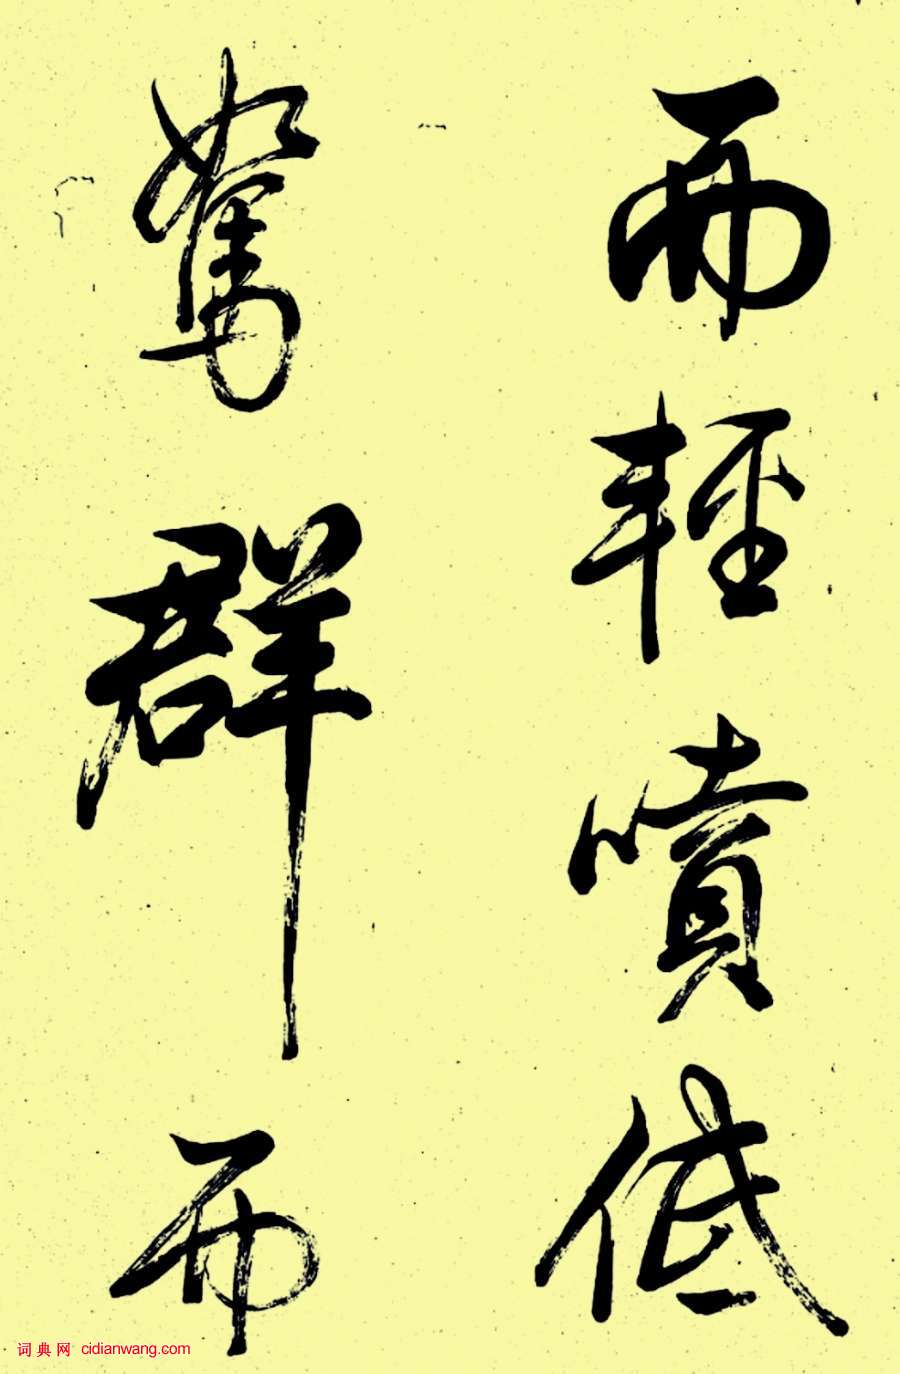 而輕噴低
駑群而
词典网 cidianwang.com